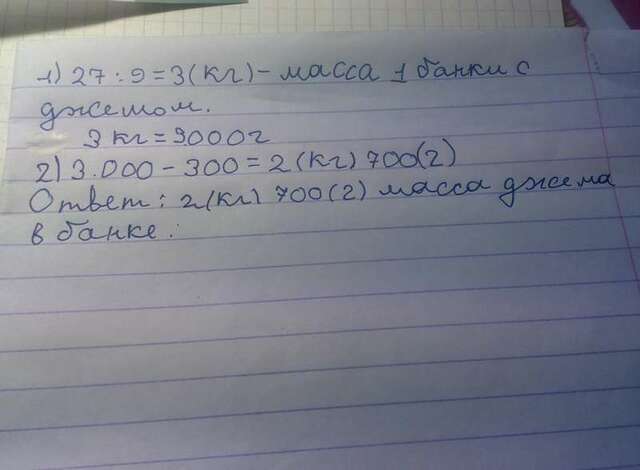 1) 27 : 9 = 3 (кг) - масса 1 банки с
джемом.
3 кг = 3000 г
2) 3.000 - 300 = 2 (кг) 700 (г)
Ответ: 2 (кг) 700 (г) масса джема
в банке.